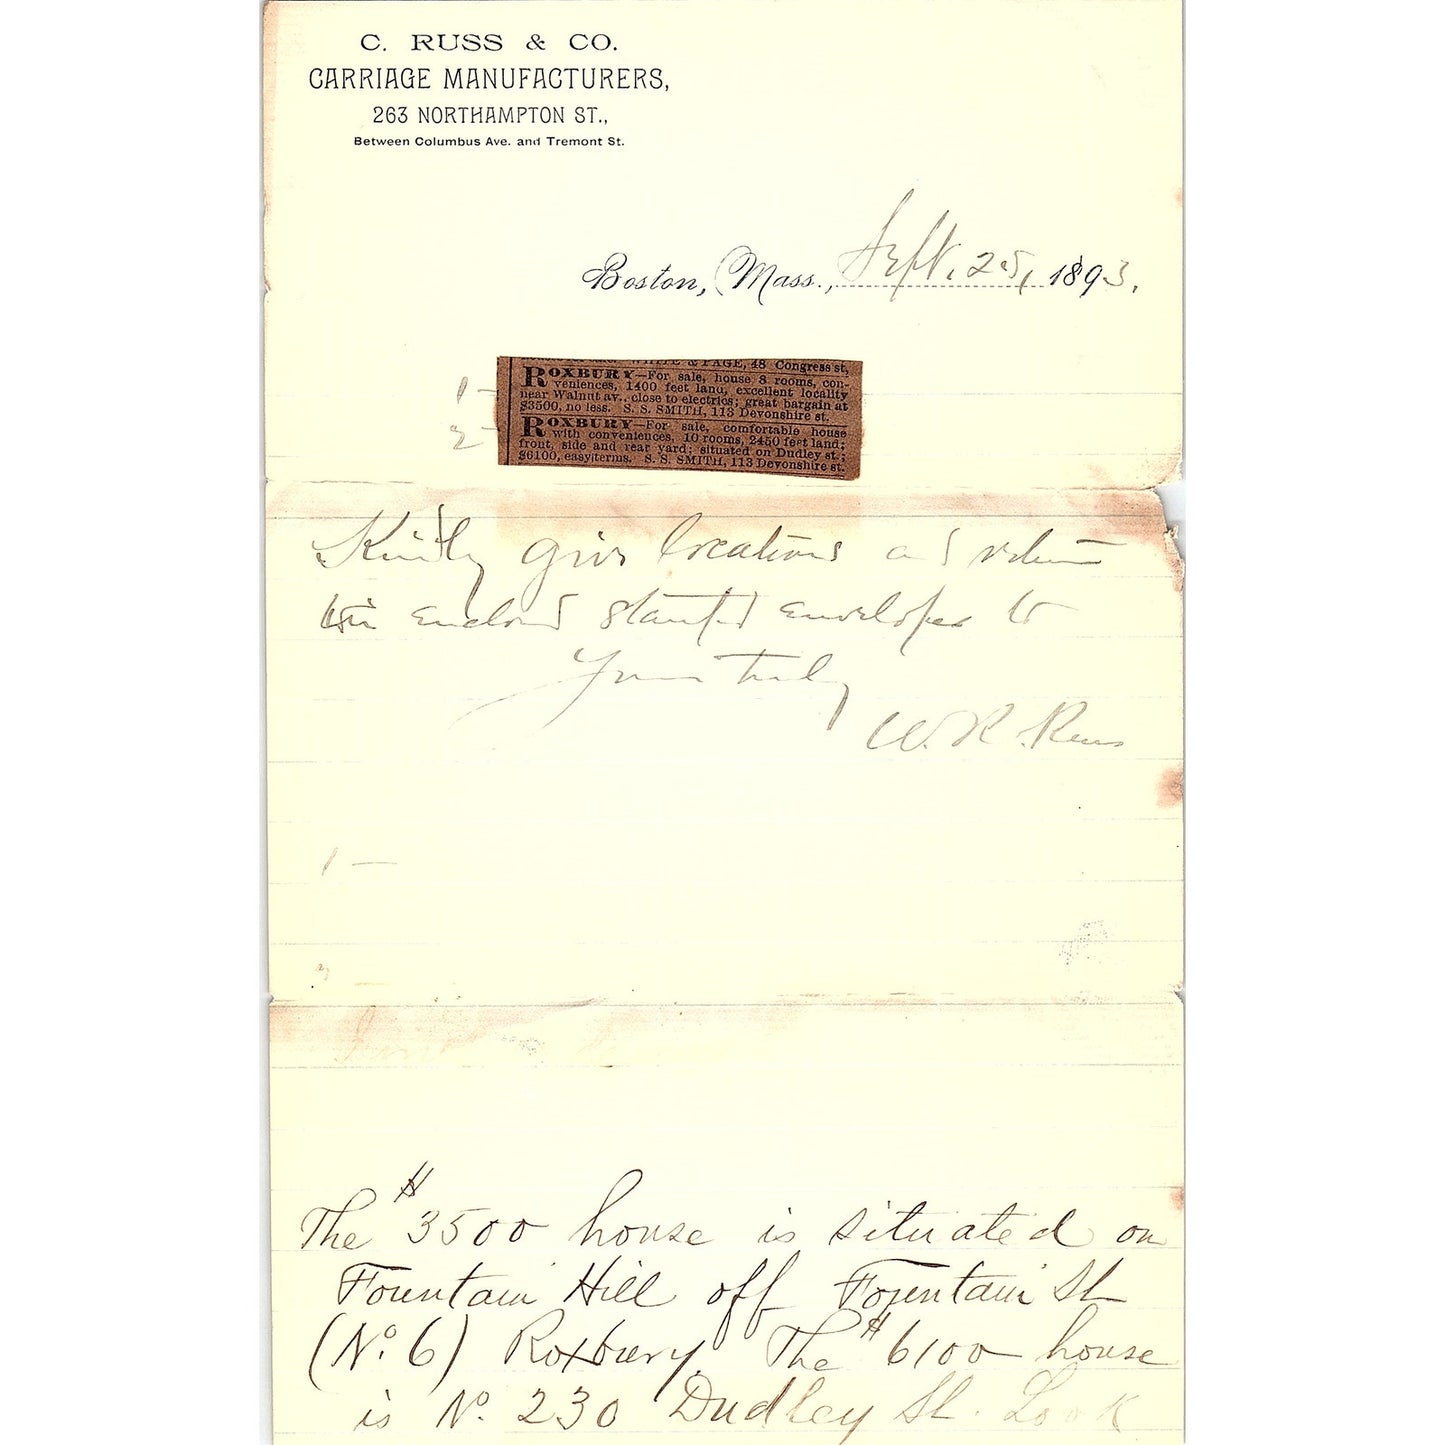 C. RUSS & CO.
CARRIAGE MANUFACTURERS,
263 NORTHAMPTON ST.,
Between Columbus Ave. and Tremont St.
Boston, Mass., Sept. 25, 1893.
WHITE & PAGE, 48 Congress st,
1- ROXBURY—For sale, house 8 rooms, con-
veniences, 1400 feet land, excellent locality
near Walnut av., close to electrics; great bargain at
$3500, no less. S. S. SMITH, 113 Devonshire st.
2- ROXBURY—For sale, comfortable house
with conveniences, 10 rooms, 2450 feet land;
front, side and rear yard; situated on Dudley st.;
$6100, easy terms. S. S. SMITH, 113 Devonshire st.
Kindly give locations and return
in enclosed stamped envelopes to
Yours truly
W. R.
1 —
The $3500 house is situated on
Fountain Hill off Fountain St
(No. 6) Roxbury. The $6100 house
is No. 230 Dudley St. Look